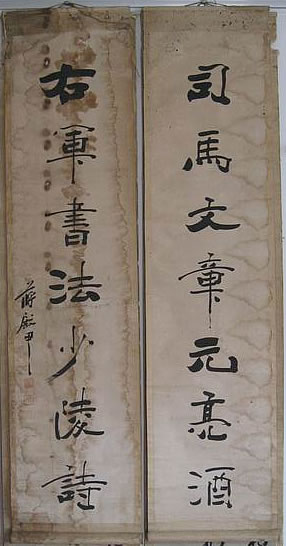 司馬文章元亮酒
右軍書法少陵詩